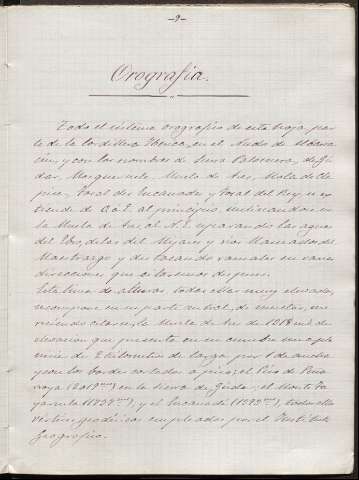 -9-
Orografía.
Todo el sistema orográfico de esta hoja, par-
te de la Cordillera Ibérica, en el Nudo de Albarra-
cín, y con los nombres de Sierra Palomera, de Gú-
dar, Mosqueruela, Muela de Ares, Mala de lle
pica, Tosal des Encanade y Tosal del Rey se ex-
tiende de O. á E. al principio, inclinandose en
la Muela de Ares al N.E. separando las aguas
del Ebro, de las del Mijares y rios Marinados del
Maestrazgo y destacando ramales en varias
direcciones que citaremos despues.
Esta linea de alturas todas ellas muy elevadas,
se compone en su parte central, de mesetas, me-
reciendo citarse, la Muela de Ares de 1318 m.s de
elevacion que presenta en su cumbre una pla-
nicie de 2 kilometros de larga por 1 de ancho
y con los bordes cortados a pico; el Pico de Peña-
rroya (2019 m) en la sierra de Gúdar; el Monte Ta
yanulla (1738 m), y el Encanadé (1393 m), todos ellos
vertices geodésicos empleados por el Instituto
Geográfico.